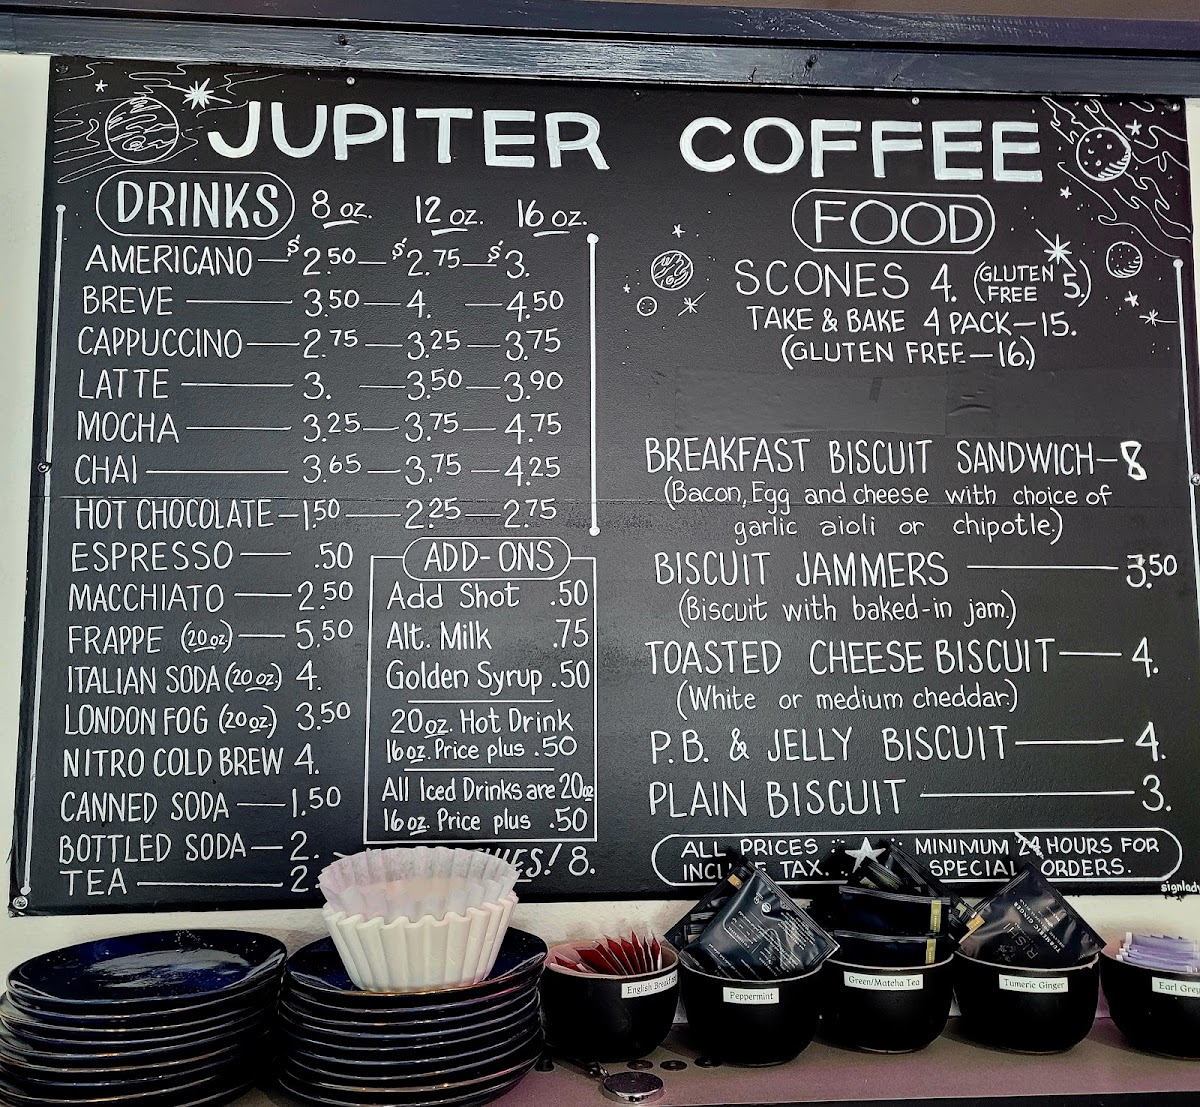 JUPITER COFFEE
DRINKS 8 oz. 12 oz. 16 oz.
AMERICANO — $2.50 — $2.75 — $3.
BREVE — 3.50 — 4. — 4.50
CAPPUCCINO — 2.75 — 3.25 — 3.75
LATTE — 3. — 3.50 — 3.90
MOCHA — 3.25 — 3.75 — 4.75
CHAI — 3.65 — 3.75 — 4.25
HOT CHOCOLATE — 1.50 — 2.25 — 2.75
ESPRESSO — .50
MACCHIATO — 2.50
FRAPPE (20 oz.) — 5.50
ITALIAN SODA (20 oz.) 4.
LONDON FOG (20 oz.) 3.50
NITRO COLD BREW 4.
CANNED SODA — 1.50
BOTTLED SODA — 2.
TEA — 2.
ADD-ONS
Add Shot .50
Alt. Milk .75
Golden Syrup .50
20 oz. Hot Drink
16 oz. Price plus .50
All Iced Drinks are 20 oz
16 oz. Price plus .50
8.
FOOD
SCONES 4. (GLUTEN FREE 5.)
TAKE & BAKE 4 PACK — 15.
(GLUTEN FREE — 16.)
BREAKFAST BISCUIT SANDWICH — 8
(Bacon, Egg and cheese with choice of
garlic aioli or chipotle.)
BISCUIT JAMMERS — 3.50
(Biscuit with baked-in jam.)
TOASTED CHEESE BISCUIT — 4.
(White or medium cheddar.)
P.B. & JELLY BISCUIT — 4.
PLAIN BISCUIT — 3.
ALL PRICES
TAX.
MINIMUM 24 HOURS FOR
SPECIAL ORDERS.
English Breakfast
Peppermint
Green/Matcha Tea
Tumeric Ginger
Earl Grey